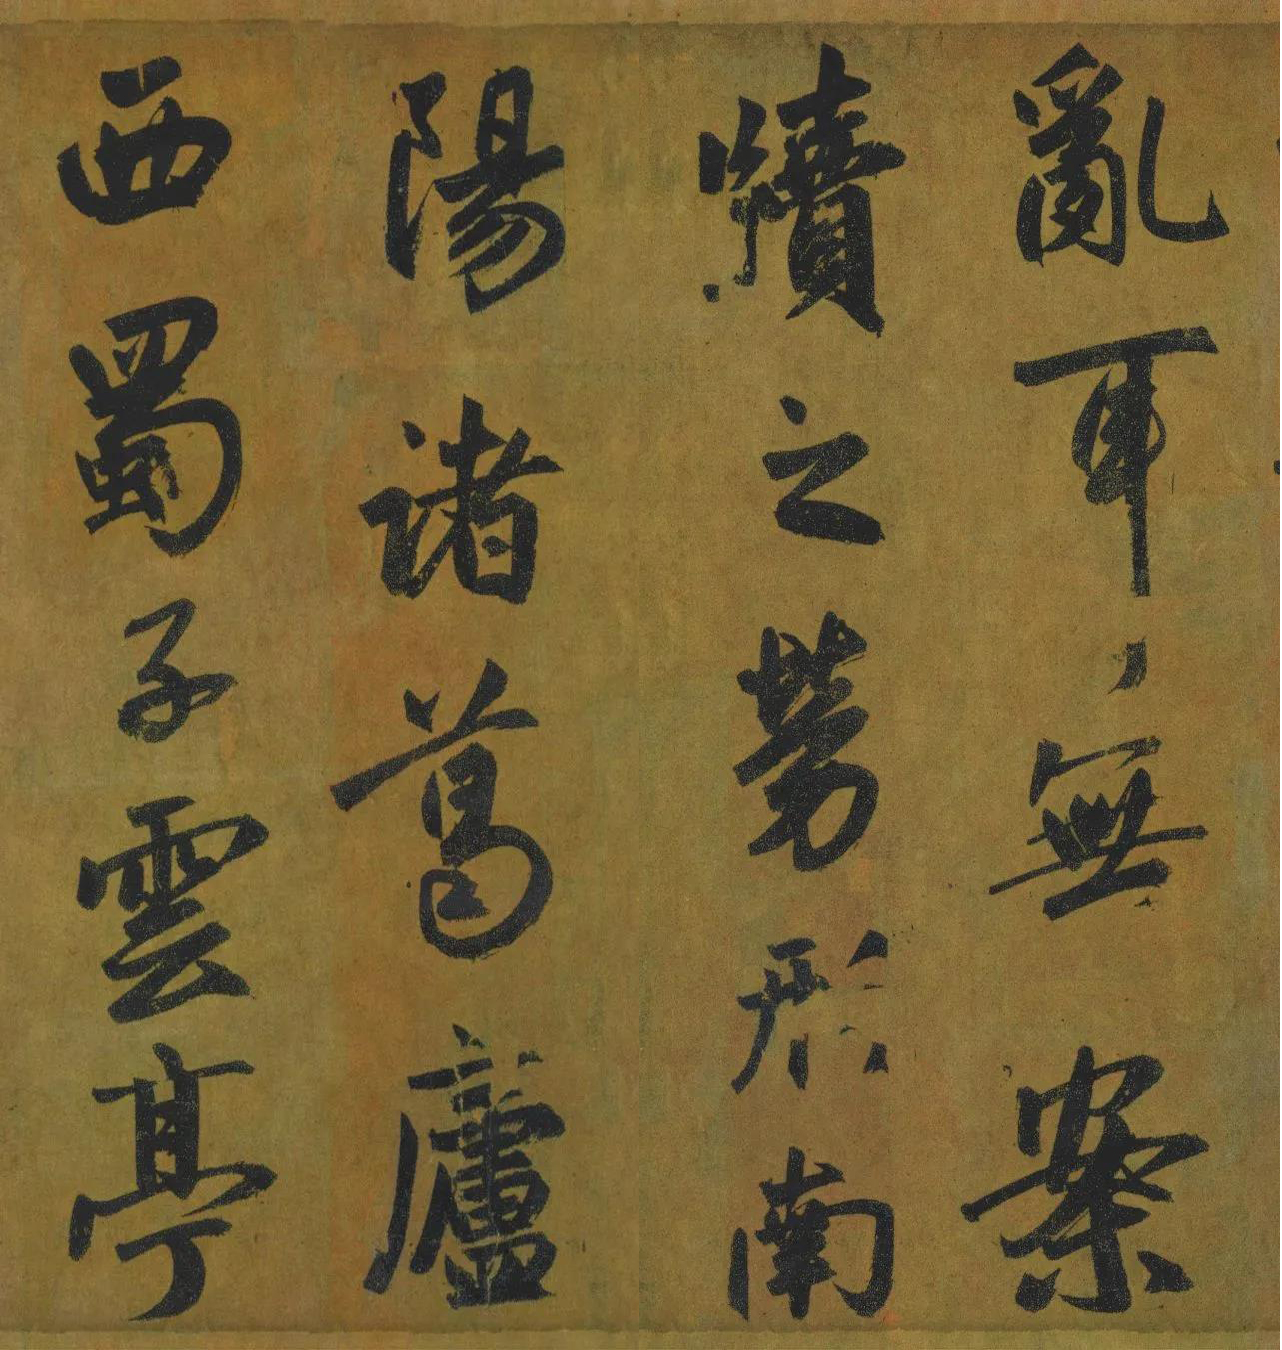 亂耳無案
牘之勞形南
陽諸葛廬
西蜀子雲亭